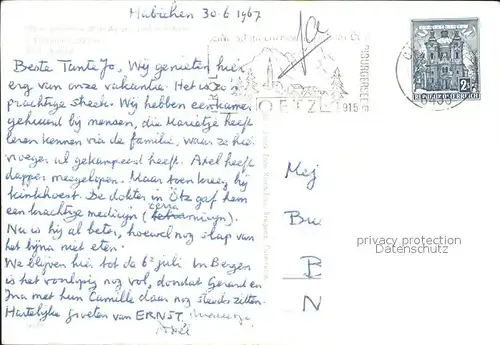 Habichen 30-6 1967
Beste Tante Jo, Wij genieten hier
erg van onze vakantie. Het is zo'n
prachtige streek. Wij hebben een kamer
gehuurd bij mensen, die Marietje heeft
leren kennen via de familie, waar ze hier
vroeger al gekampeerd heeft. Axel heeft
dapper meegelopen. Maar toen kreeg hij
kinkhoest. De dokter in Ötz gaf hem
een krachtige medicijn
Nu is hij al beter, hoewel nog slap van
het bijna niet eten.
We blijven hier tot de 6e juli. In Bergen
is het voorlopig nog vol, doordat Gerard en
Ina met hun Camille daar nog steeds zitten.
Hartelijke groeten van ERNST,
Axel
OETZ
915
6433
REPUBLIK ÖSTERREICH
Mej
B
N
privacy protection
Datenschutz